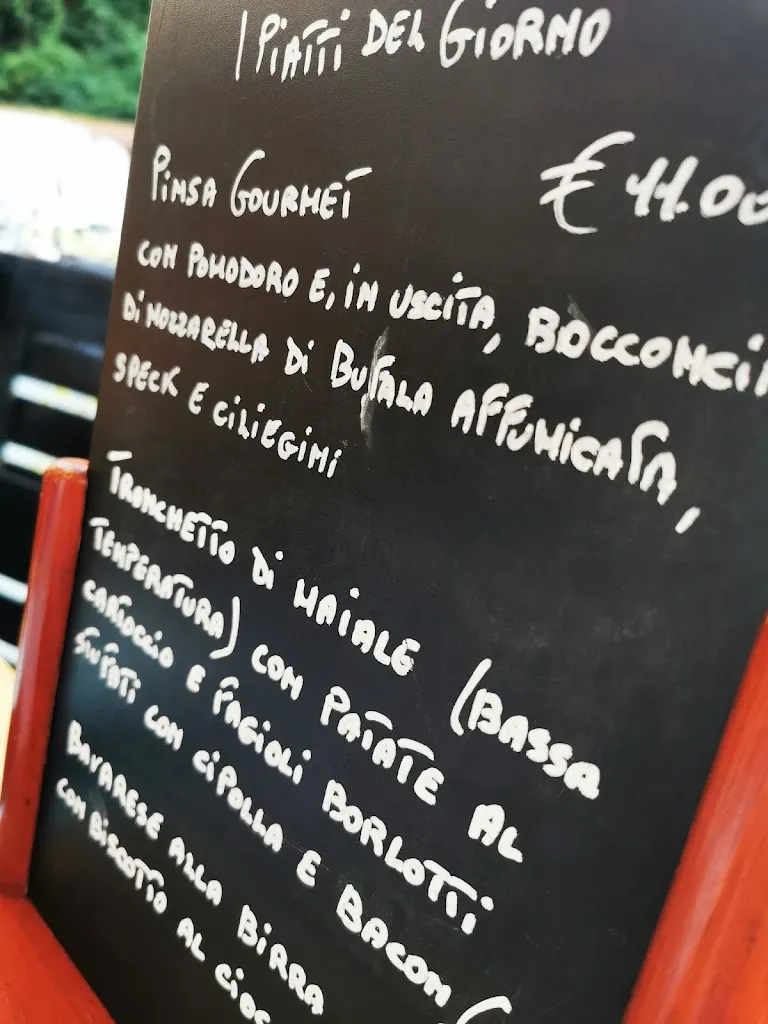 I PIATTI DEL GIORNO
PINSA GOURMET € 11.00
CON POMODORO E, IN USCITA, BOCCONCI
DI MOZZARELLA DI BUFALA AFFUMICATA,
SPECK E CILIEGINI
TRONCHETTO DI MAIALE (BASSA
TEMPERATURA) CON PATATE AL
CARTOCCIO E FAGIOLI BORLOTTI
STUFATI CON CIPOLLA E BACON (
BAVARESE ALLA BIRRA
CON BISCOTTO AL CIOC